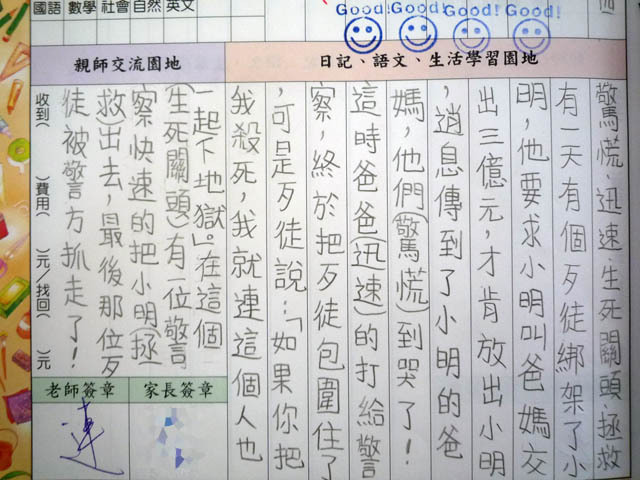 國語 數學 社會 自然 英文
Good! Good! Good! Good!
日記、語文、生活學習園地
驚慌、迅速、生死關頭、拯救
有一天有個歹徒綁架了小
明,他要求小明叫爸媽交
出三億元,才肯放出小明
,逍息傳到了小明的爸
媽,他們(驚慌)到哭了!
這時爸爸(迅速)的打給警
察,終於把歹徒包圍住了
,可是歹徒說:「如果你把
我殺死,我就連這個人也
親師交流園地
一起下地獄」。在這個
(生死關頭)有一位警
察快速的把小明(拯
救)出去,最後那位歹
徒被警方抓走了!
收到( )費用( )元/找回( )元
家長簽章
老師簽章
連